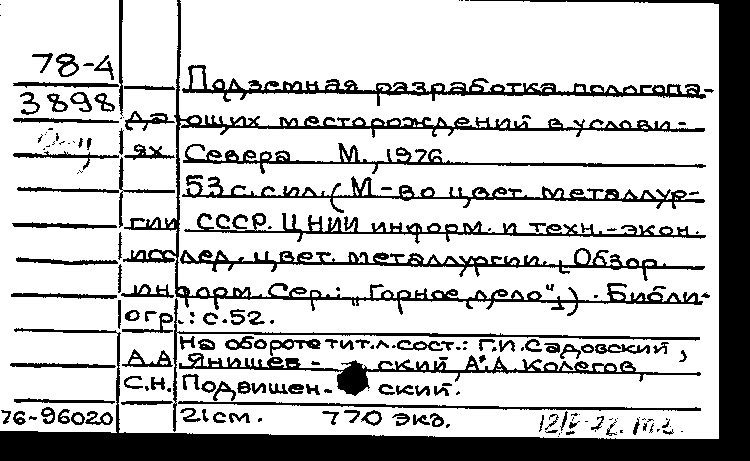 78-4
3898
Подземная разработка пологопа-
дающих месторождений в услови-
ях Севера М., 1976.
53 с. с ил. (М-во цвет. металлур-
гии СССР. ЦНИИ информ. и техн.-экон.
исслед. цвет. металлургии. Обзор.
информ. Сер.: „Горное дело“). Библи-
огр.: с. 52.
На обороте тит. л. сост.: Г.И. Садовский,
А.А. Янишевский, А.А. Колегов,
С.Н. Подвишенский.
76-96020 21 см. 770 экз.